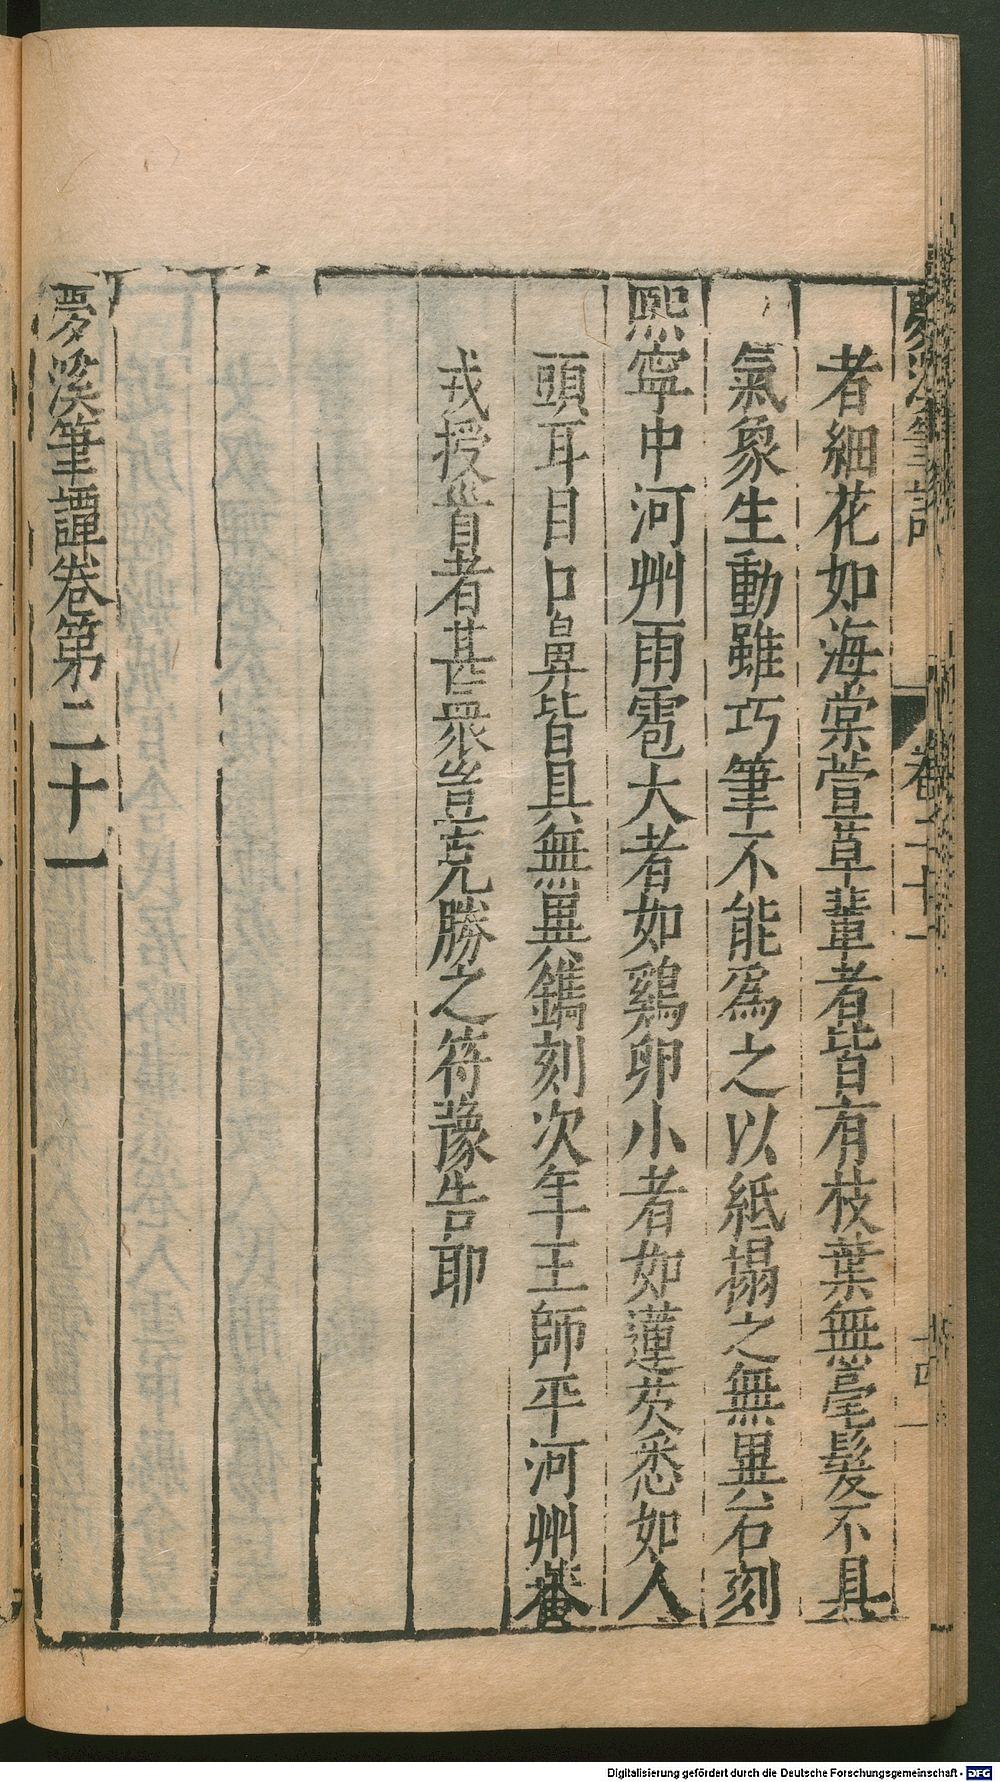 者細花如海棠萱草輩者皆有枝葉無毫髮不具
氣象生動雖巧筆不能爲之以紙搨之無異石刻
熙寧中河州雨雹大者如鷄卵小者如蓮芡悉如人
頭耳目口鼻皆具無異鐫刻次年王師平河州蕃
戎授首者甚衆豈克勝之符豫告耶
夢溪筆譚卷第二十一
Digitalisierung gefördert durch die Deutsche Forschungsgemeinschaft - DFG